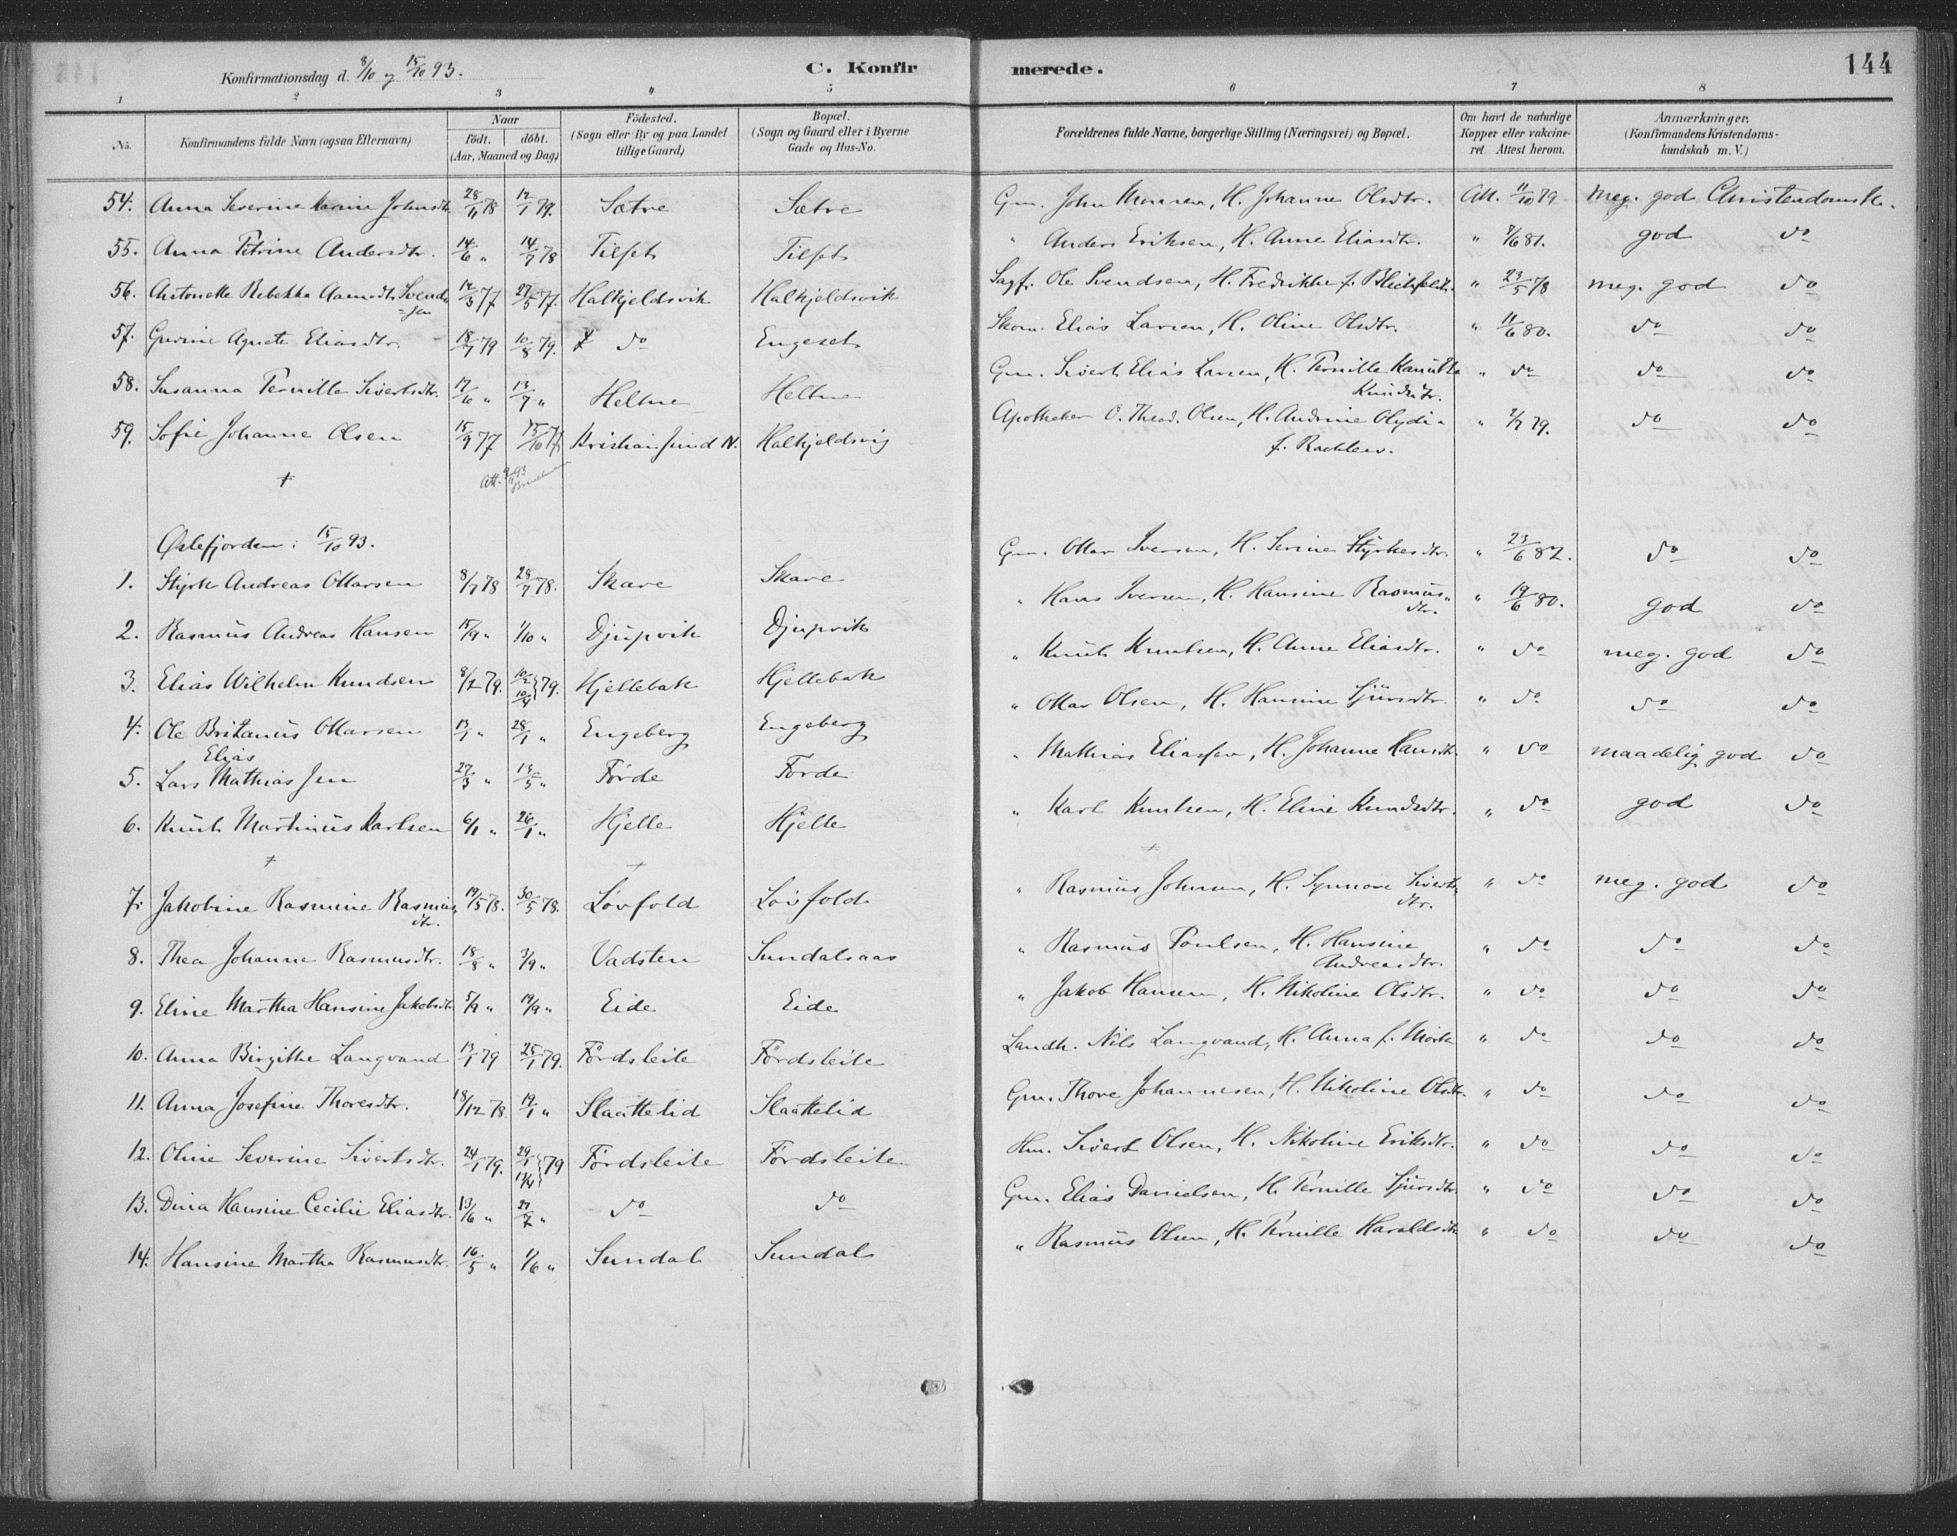 Konfirmationsdag d. 8/10 og 15/10 93. C. Konfirmerede. 144
1 2 3 4 5 6 7 8
No. Konfirmandens fulde Navn (ogsaa Efternavn) Naar født. døbt. (Aar, Maaned og Dag) Fødested. (Sogn eller By og paa Landet tillige Gaard) Bopæl. (Sogn og Gaard eller i Byerne Gade og Hus-No. Forældrenes fulde Navne, borgerlige Stilling (Næringsvei) og Bopæl. Om havt de naturlige Kopper eller vakcineret. Attest herom. Anmærkninger. (Konfirmandens Kristendomskundskab m. V.)
54. Anna Severine Marine Johnsdtr. 28/11 78 12/1 79. Sætre Sætre Gm. John Monsen, H. Johanne Olsdtr. Att. 11/10 79 meg. god Christendomsk.
55. Anna Petrine Andersdtr. 14/6 " 14/7 78 Tilset Tilset " Anders Eriksen, H. Anne Eliasdtr. " 7/6 81. god do
56. Antonette Rebekka Svendsen 12/3 77 27/5 77. Halkjeldsvik Halkjeldsvik Sagf. Ole Svendsen, H. Fredrikke f. " 23/5 78 meg. god do
57. Gurine Agnete Eliasdtr. 18/7 79 10/8 79. do Engeset Skom. Elias Larsen, H. Oline Olsdtr. " 11/6 80. do do
58. Susanna Pernille Sivertsdtr. 17/6 " 13/7 " Heltne Heltne Gm. Sivert Elias Larsen, H. Pernille Kanutta Knudsdtr. " do do do
59. Sofie Johanne Olsen 15/9 77 15/10 77 Kristiansund N. Halkjeldsvig Apotheker O. Thead. Olsen, H. Andrine Olydia f. " 2/7 79. do do
+ Att.
Ørstefjorden: 15/10 93.
1. Styrk Andreas Ottarsen 8/7 78 28/7 78. Skare Skare Gm. Ottar Iversen, H. Serine Styrkesdtr. " 23/6 82. do do
2. Rasmus Andreas Hansen 15/9 " 1/10 " Djupvik Djupvik " Hans Iversen, H. Hansine Rasmusdtr. " 19/6 80. god do
3. Elias Wilhelm Knudsen 8/2 79. 10/2 10/4 } 79. Hjellebak Hjellebak " Knut Knutsen, H. Anne Eliasdtr. " do meg. god do
4. Ole Britanus Ottarsen 13/1 " 28/1 " Engeberg Engeberg " Ottar Olsen, H. Hansine Sjursdtr. " do do do
5. Lars Mathias Elias Jen 27/3 " 13/5 " Førde Førde " Mathias Eliassen, H. Johanne Hansdtr. " do maadelig god do
6. Knut Martinus Karlsen 6/1 " 26/1 " Hjelle Hjelle " Karl Knutsen, H. Eline Knudsdtr. " do god do
+ + +
7. Jakobine Rasmine Rasmusdtr. 19/5 78. 30/5 78. Løvfold Løvfold " Rasmus Johnsen, H. Synnove Sivertsdtr. " do meg. god do
8. Thea Johanne Rasmusdtr. 18/8 " 3/9 " Vadsten Sundalsaas " Rasmus Poulsen, H. Hansine Andreasdtr. " do do do
9. Eline Martha Hansine Jakobsdtr. 5/9 " 19/9 " Eide Eide " Jakob Hansen, H. Nikoline Olsdtr. " do do do
10. Anna Birgithe Langvand 13/1 79 25/1 79. Førdsleite Førdsleite Landh. Nils Langvand, H. Anna f. Mork " do do do
11. Anna Josefine Thoresdtr. 18/12 78 19/1 " Slaattelid Slaattelid Gm. Thore Johannesen, H. Nikoline Olsdtr. " do do do
12. Oline Severine Sivertsdtr. 24/1 79. 29/1 14/4 } 79 Førdsleite Førdsleite Hm. Sivert Olsen, H. Nikoline Eriksdtr. " do do do
13. Dina Hansine Cecilie Eliasdtr. 13/6 " 27/7 " do do Gm. Elias Danielsen, H. Pernille Sjursdtr. " do do do
14. Hansine Martha Rasmusdtr. 16/5 " 1/6 " Sundal Sundal " Rasmus Olsen, H. Pernille Haraldsdtr. " do do do